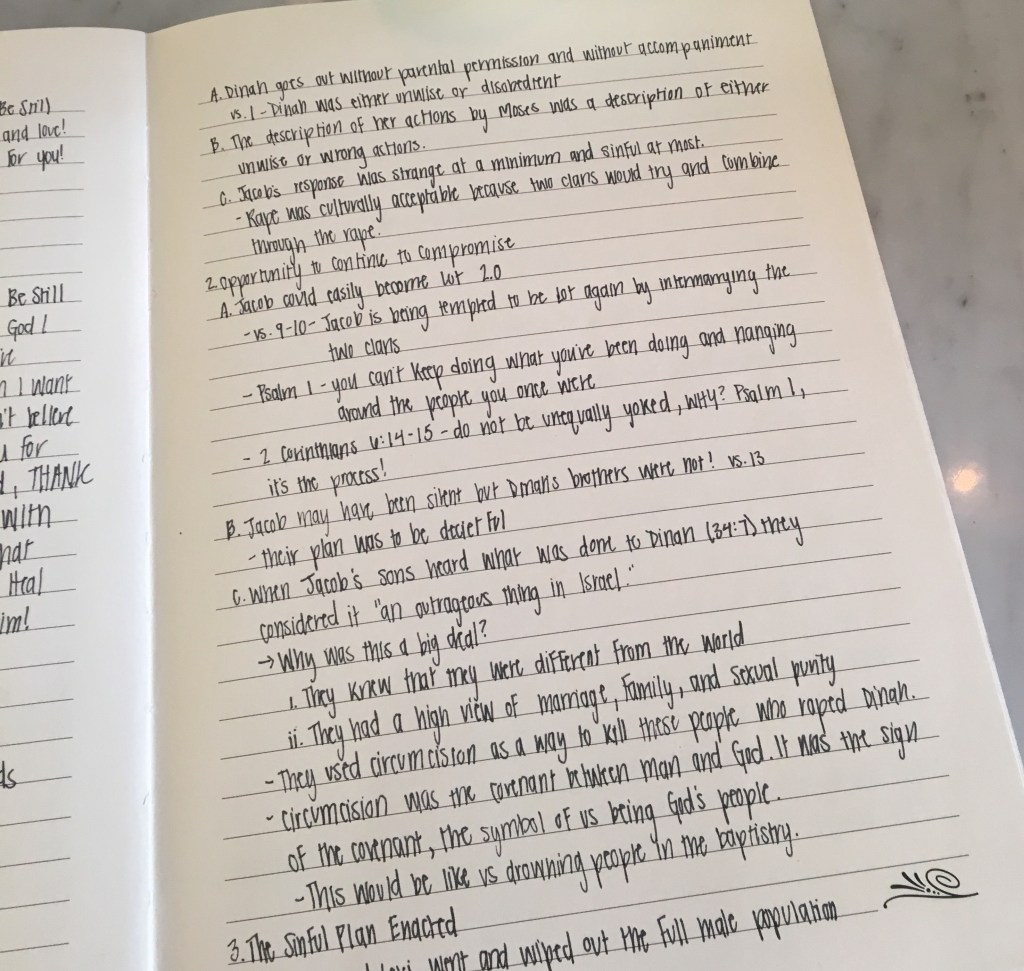 Be Still)
and love!
for you!
Be Still
God!
I want
believe
for
THANK
with
Heal
A. Dinah goes out without parental permission and without accompaniment
vs. 1 - Dinah was either unwise or disobedient
B. The description of her actions by Moses was a description of either
unwise or wrong actions.
C. Jacob's response was strange at a minimum and sinful at most.
- Rape was culturally acceptable because two clans would try and combine
through the rape.
2. Opportunity to continue to compromise
A. Jacob could easily become Lot 2.0
- vs. 9-10 - Jacob is being tempted to be Lot again by intermarrying the
two clans
- Psalm 1 - you can't keep doing what you've been doing and hanging
around the people you once were
- 2 Corinthians 6:14-15 - do not be unequally yoked, WHY? Psalm 1,
it's the process!
B. Jacob may have been silent but Dinah's brothers were not! vs. 13
- their plan was to be deceitful
C. When Jacob's sons heard what was done to Dinah (34:7) they
considered it "an outrageous thing in Israel."
→ Why was this a big deal?
i. They knew that they were different from the world
ii. They had a high view of marriage, family, and sexual purity
- They used circumcision as a way to kill these people who raped Dinah.
- circumcision was the covenant between man and God. It was the sign
of the covenant, the symbol of us being God's people.
- This would be like us drowning people in the baptistry.
3. The Sinful Plan Enacted
went and wiped out the full male population